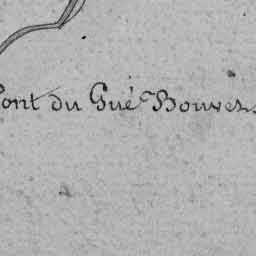 Pont du Gué Bouvet